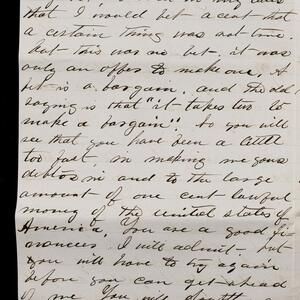 that I would bet a cent that
a certain thing was not true.
but this was no bet, it was
only an offer to make one. A
bet is a bargain, and the old
saying is that "it takes two to
make a bargain". So you will
see that you have been a little
too fast, in making me your
debtor in and to the large
amount of one cent lawful
money of the United States of
America. You are a good fi-
nancier I will admit. but
you will have to try again
before you can get ahead
of me. You will